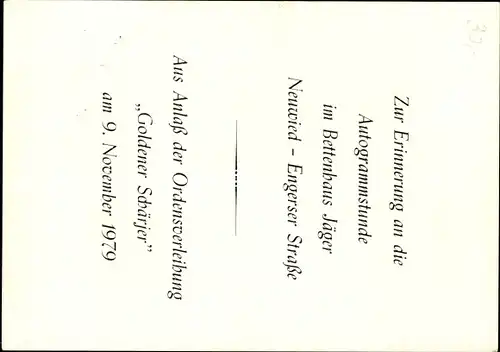 Zur Erinnerung an die
Autogrammstunde
im Bettenhaus Jäger
Neuwied - Engerser Straße
Aus Anlaß der Ordensverleihung
„Goldener Schärjer”
am 9. November 1979